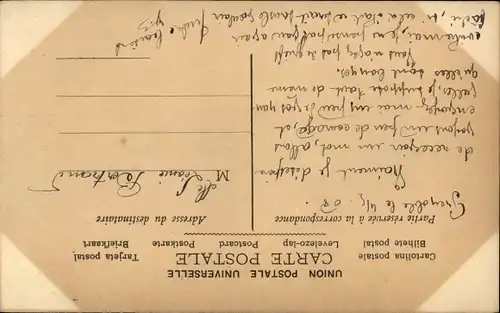 UNION POSTALE UNIVERSELLE
CARTE POSTALE
Cartolina postale Levelezo-lap Tarjeta postal
Bilhete postal Postcard Postkarte Briefkaart
Partie réservée à la correspondance
Adresse du destinataire
Grenoble le
Vraiment je désespère
de recevoir un mot, allons
voyons un peu de courage, et
envoyez-moi un peu de vos nou-
velles, je suppose tout de même
qu'elles sont bonnes.
Vous n'avez pas de griefs
contre moi, je ne pense pas vous avoir
si cela était
Mlle Léonie Bertrand